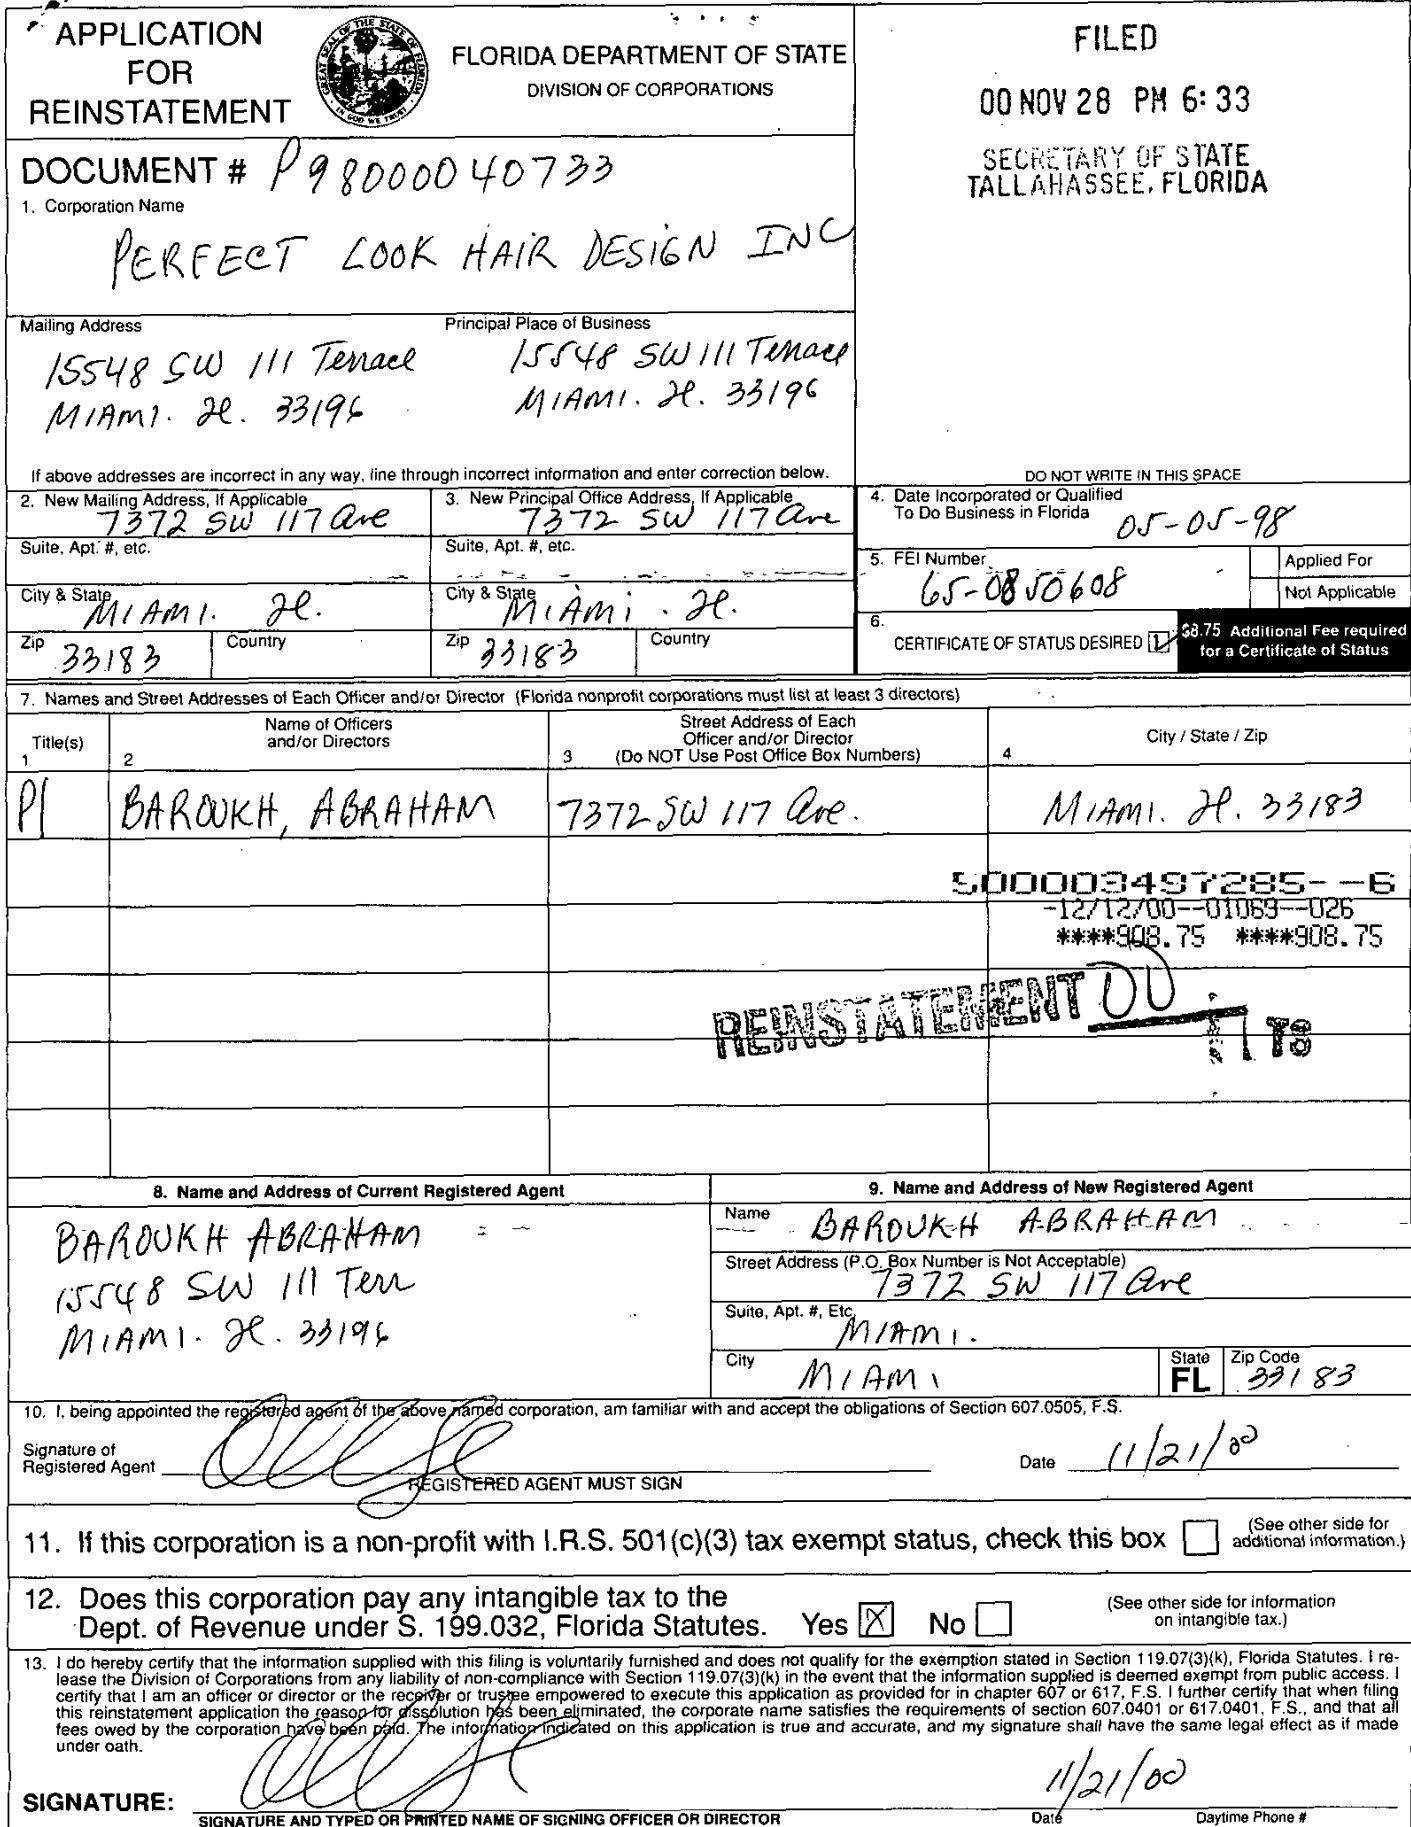 APPLICATION
FOR
REINSTATEMENT
GREAT SEAL OF THE STATE OF FLORIDA
IN GOD WE TRUST
FLORIDA DEPARTMENT OF STATE
DIVISION OF CORPORATIONS
FILED
00 NOV 28 PM 6:33
SECRETARY OF STATE
TALLAHASSEE, FLORIDA
DOCUMENT # P98000040733
1. Corporation Name
PERFECT LOOK HAIR DESIGN INC
Mailing Address
15548 SW 111 Terrace
MIAMI. Fl. 33196
Principal Place of Business
15548 SW 111 Terrace
MIAMI. Fl. 33196
If above addresses are incorrect in any way, line through incorrect information and enter correction below.
DO NOT WRITE IN THIS SPACE
2. New Mailing Address, If Applicable
7372 SW 117 Ave
Suite, Apt. #, etc.
City & State
MIAMI. Fl.
Zip 33183 Country
3. New Principal Office Address, If Applicable
7372 SW 117 Ave
Suite, Apt. #, etc.
City & State
MIAMI. Fl.
Zip 33183 Country
4. Date Incorporated or Qualified
To Do Business in Florida 05-05-98
5. FEI Number
65-0850608
Applied For
Not Applicable
6.
CERTIFICATE OF STATUS DESIRED
$8.75 Additional Fee required
for a Certificate of Status
7. Names and Street Addresses of Each Officer and/or Director (Florida nonprofit corporations must list at least 3 directors)
Title(s)
1
Name of Officers
and/or Directors
2
Street Address of Each
Officer and/or Director
3 (Do NOT Use Post Office Box Numbers)
City / State / Zip
4
P BAROUKH, ABRAHAM 7372 SW 117 Ave. MIAMI. Fl. 33183
500003497285--6
-12/12/00--01069--026
****908.75 ****908.75
REINSTATEMENT 00
TS
8. Name and Address of Current Registered Agent
BAROUKH ABRAHAM
15548 SW 111 Terr
MIAMI. Fl. 33196
9. Name and Address of New Registered Agent
Name BAROUKH ABRAHAM
Street Address (P.O. Box Number is Not Acceptable)
7372 SW 117 Ave
Suite, Apt. #, Etc.
MIAMI.
City MIAMI State FL Zip Code 33183
10. I, being appointed the registered agent of the above named corporation, am familiar with and accept the obligations of Section 607.0505, F.S.
Signature of
Registered Agent
REGISTERED AGENT MUST SIGN
Date 11/21/00
11. If this corporation is a non-profit with I.R.S. 501(c)(3) tax exempt status, check this box
(See other side for
additional information.)
12. Does this corporation pay any intangible tax to the
Dept. of Revenue under S. 199.032, Florida Statutes. Yes X No
(See other side for information
on intangible tax.)
13. I do hereby certify that the information supplied with this filing is voluntarily furnished and does not qualify for the exemption stated in Section 119.07(3)(k), Florida Statutes. I re-
lease the Division of Corporations from any liability of non-compliance with Section 119.07(3)(k) in the event that the information supplied is deemed exempt from public access. I
certify that I am an officer or director or the receiver or trustee empowered to execute this application as provided for in chapter 607 or 617, F.S. I further certify that when filing
this reinstatement application the reason for dissolution has been eliminated, the corporate name satisfies the requirements of section 607.0401 or 617.0401, F.S., and that all
fees owed by the corporation have been paid. The information indicated on this application is true and accurate, and my signature shall have the same legal effect as if made
under oath.
SIGNATURE:
SIGNATURE AND TYPED OR PRINTED NAME OF SIGNING OFFICER OR DIRECTOR
11/21/00
Date
Daytime Phone #